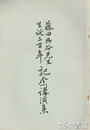 藤田幽谷先生
生誕二百年記念講演集